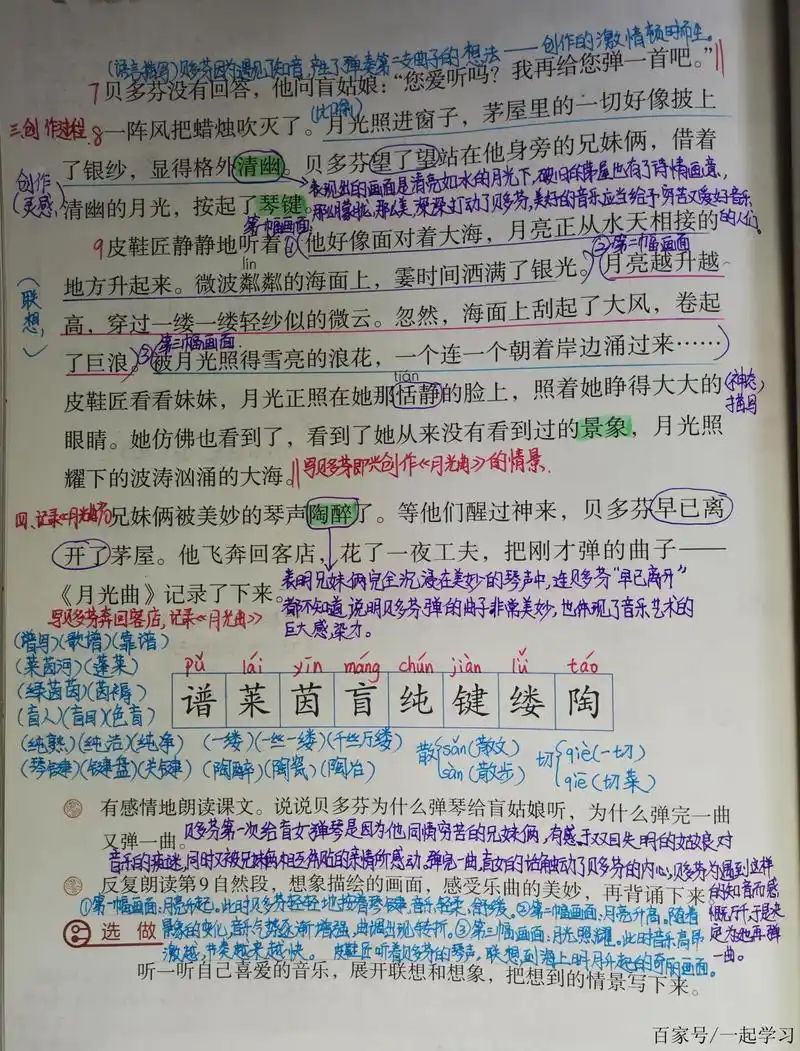 (语言描写)贝多芬因为遇见了知音,产生了弹奏第二支曲子的想法——创作的激情顿时而生。
7贝多芬没有回答,他问盲姑娘:“您爱听吗?我再给您弹一首吧。”
(比喻)
三、创作过程
8一阵风把蜡烛吹灭了。月光照进窗子,茅屋里的一切好像披上
了银纱,显得格外清幽。贝多芬望了望站在他身旁的兄妹俩,借着
创作灵感
表现出的画面是清亮如水的月光下,破旧的茅屋也有了诗情画意,
清幽的月光,按起了琴键。
那么朦胧,那么美,深深打动了贝多芬,美好的音乐应当给予穷苦又爱好音乐的人们。
第一幅画面
9皮鞋匠静静地听着。①他好像面对着大海,月亮正从水天相接的
lín
②第二幅画面
地方升起来。微波粼粼的海面上,霎时间洒满了银光。月亮越升越
(联想)
高,穿过一缕一缕轻纱似的微云。忽然,海面上刮起了大风,卷起
第三幅画面
了巨浪。③被月光照得雪亮的浪花,一个连一个朝着岸边涌过来……
tián
皮鞋匠看看妹妹,月光正照在她那恬静的脸上,照着她睁得大大的
(神态描写)
眼睛。她仿佛也看到了,看到了她从来没有看到过的景象,月光照
耀下的波涛汹涌的大海。
写贝多芬即兴创作《月光曲》的情景.
四、记录《月光曲》
兄妹俩被美妙的琴声陶醉了。等他们醒过神来,贝多芬早已离
开了茅屋。他飞奔回客店,花了一夜工夫,把刚才弹的曲子——
《月光曲》记录了下来。
表明兄妹俩完全沉浸在美妙的琴声中,连贝多芬“早已离开”
都不知道,说明贝多芬弹的曲子非常美妙,也体现了音乐艺术的
巨大感染力。
写贝多芬奔回客店,记录《月光曲》
(谱写)(歌谱)(靠谱)
(莱茵河)(蓬莱)
(绿茵茵)(茵褥)
(盲人)(盲目)(色盲)
pǔ lái yīn máng chún jiàn lǚ táo
谱 莱 茵 盲 纯 键 缕 陶
(纯熟)(纯洁)(纯净) (一缕)(一丝一缕)(千丝万缕)
(琴键)(键盘)(关键) (陶醉)(陶瓷)(陶冶)
散 sǎn(散文)
sàn(散步)
切 qiè(一切)
qiē(切菜)
有感情地朗读课文。说说贝多芬为什么弹琴给盲姑娘听,为什么弹完一曲
又弹一曲。
贝多芬第一次给盲女弹琴是因为他同情穷苦的兄妹俩,有感于双目失明的姑娘对
音乐的痴迷,同时又被兄妹俩相互体贴的亲情所感动。弹完一曲,盲女的话触动了贝多芬的内心,贝多芬为遇到这样
的知音而感慨万千,于是决定为她再弹一曲。
反复朗读第9自然段,想象描绘的画面,感受乐曲的美妙,再背诵下来。
①第一幅画面:月亮升起。此时贝多芬轻轻地按着琴键,音乐轻柔、舒缓。②第二幅画面:月亮升高。随着
景象的变化,音乐气势逐渐增强,曲调出现转折。③第三幅画面:月光照耀。此时音乐高昂
激越,节奏越来越快。 皮鞋匠听着贝多芬的琴声,联想到海上明月升起的奇丽画面。
选做
听一听自己喜爱的音乐,展开联想和想象,把想到的情景写下来。
百家号/一起学习